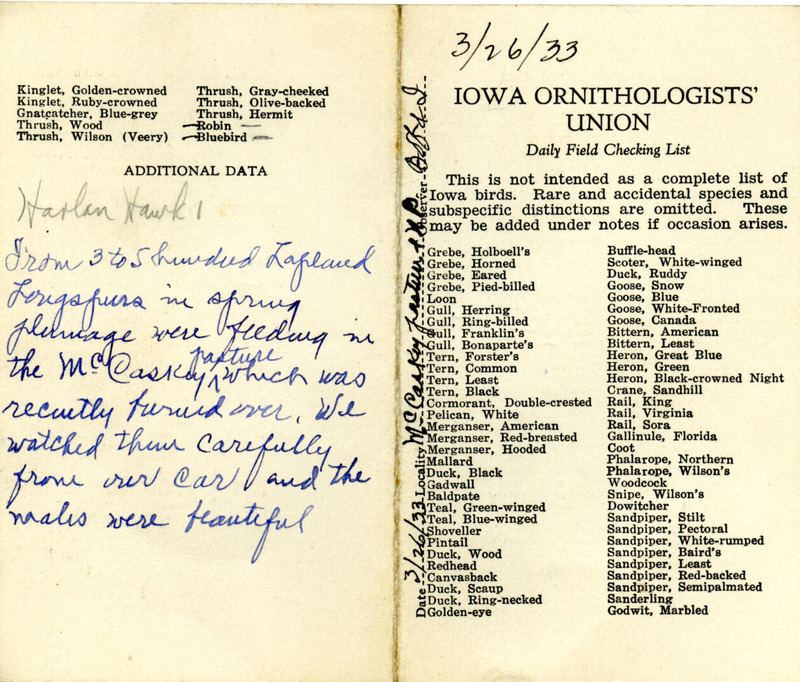 Kinglet, Golden-crowned
Kinglet, Ruby-crowned
Gnatcatcher, Blue-grey
Thrush, Wood
Thrush, Wilson (Veery)
Thrush, Gray-cheeked
Thrush, Olive-backed
Thrush, Hermit
Robin
Bluebird
ADDITIONAL DATA
Harlan Hawk 1
From 3 to 5 hundred Lapland
Longspurs in spring
plumage were feeding in
the McCaskey pasture which was
recently burned over. We
watched them carefully
from our car and the
males were beautiful
3/26/33
IOWA ORNITHOLOGISTS'
UNION
Daily Field Checking List
This is not intended as a complete list of
Iowa birds. Rare and accidental species and
subspecific distinctions are omitted. These
may be added under notes if occasion arises.
Date 3/26/33 Locality McCaskey pasture Observer
Grebe, Holboell's
Grebe, Horned
Grebe, Eared
Grebe, Pied-billed
Loon
Gull, Herring
Gull, Ring-billed
Gull, Franklin's
Gull, Bonaparte's
Tern, Forster's
Tern, Common
Tern, Least
Tern, Black
Cormorant, Double-crested
Pelican, White
Merganser, American
Merganser, Red-breasted
Merganser, Hooded
Mallard
Duck, Black
Gadwall
Baldpate
Teal, Green-winged
Teal, Blue-winged
Shoveller
Pintail
Duck, Wood
Redhead
Canvasback
Duck, Scaup
Duck, Ring-necked
Golden-eye
Buffle-head
Scoter, White-winged
Duck, Ruddy
Goose, Snow
Goose, Blue
Goose, White-Fronted
Goose, Canada
Bittern, American
Bittern, Least
Heron, Great Blue
Heron, Green
Heron, Black-crowned Night
Crane, Sandhill
Rail, King
Rail, Virginia
Rail, Sora
Gallinule, Florida
Coot
Phalarope, Northern
Phalarope, Wilson's
Woodcock
Snipe, Wilson's
Dowitcher
Sandpiper, Stilt
Sandpiper, Pectoral
Sandpiper, White-rumped
Sandpiper, Baird's
Sandpiper, Least
Sandpiper, Red-backed
Sandpiper, Semipalmated
Sanderling
Godwit, Marbled